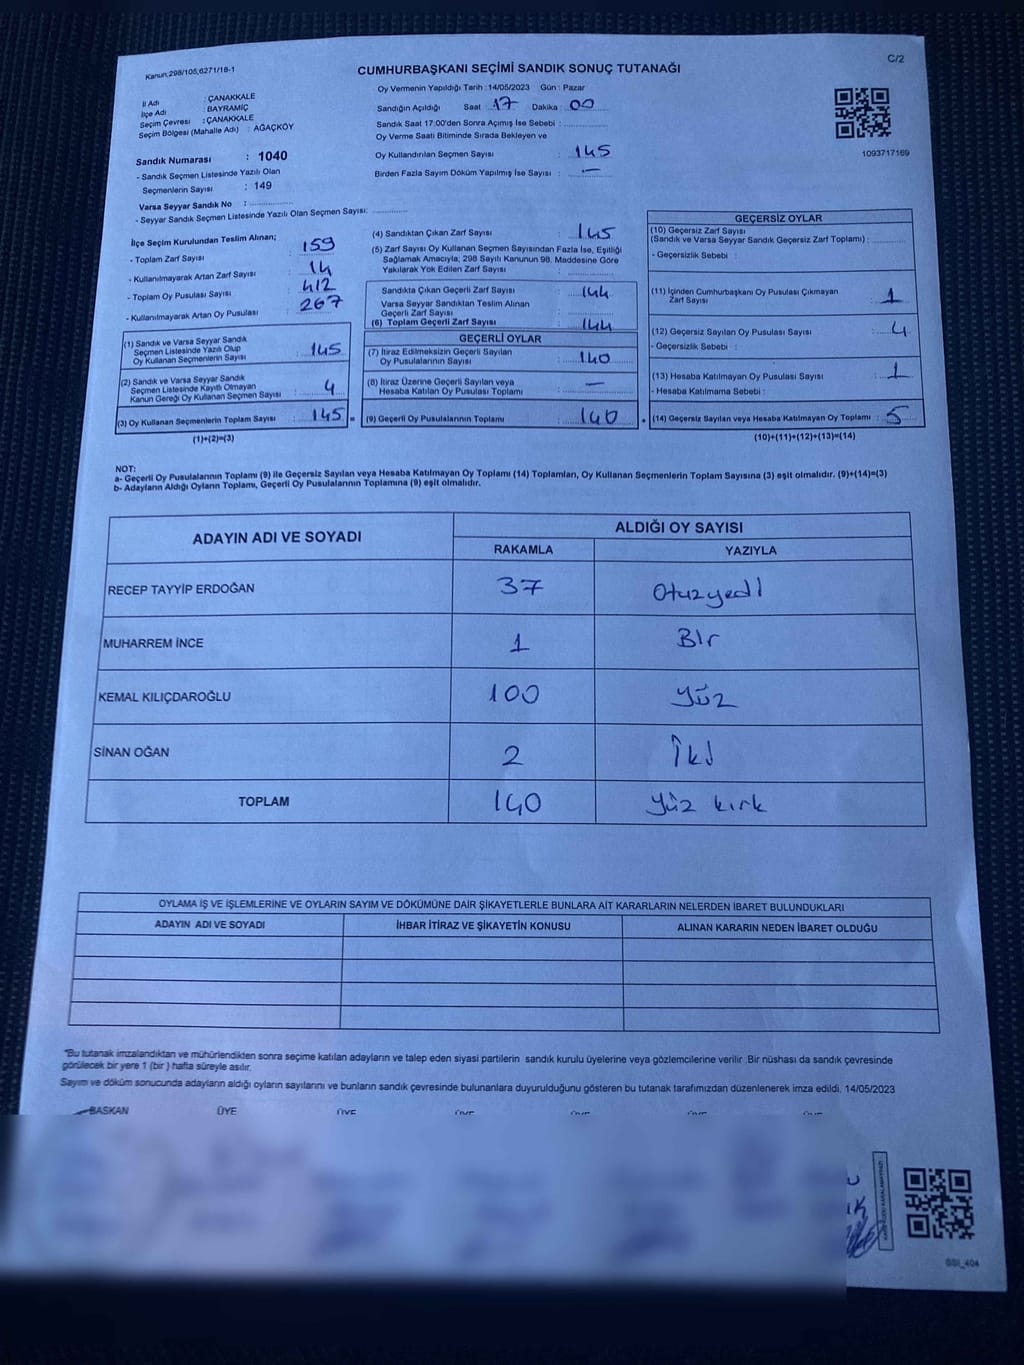 Kanun:298/105,6271/18-1
C/2
CUMHURBAŞKANI SEÇİMİ SANDIK SONUÇ TUTANAĞI
İl Adı : ÇANAKKALE
İlçe Adı : BAYRAMİÇ
Seçim Çevresi : ÇANAKKALE
Seçim Bölgesi (Mahalle Adı) : AĞAÇKÖY
Sandık Numarası : 1040
- Sandık Seçmen Listesinde Yazılı Olan
Seçmenlerin Sayısı : 149
Varsa Seyyar Sandık No : ..............
- Seyyar Sandık Seçmen Listesinde Yazılı Olan Seçmen Sayısı: ............
Oy Vermenin Yapıldığı Tarih :14/05/2023 Gün : Pazar
Sandığın Açıldığı Saat 17 Dakika : 00
Sandık Saat 17:00'den Sonra Açımış İse Sebebi : ..............
Oy Verme Saati Bitiminde Sırada Bekleyen ve
Oy Kullandırılan Seçmen Sayısı : 145
Birden Fazla Sayım Döküm Yapılmış İse Sayısı : —
1093717169
İlçe Seçim Kurulundan Teslim Alınan;
- Toplam Zarf Sayısı : 159
- Kullanılmayarak Artan Zarf Sayısı : 14
- Toplam Oy Pusulası Sayısı : 412
- Kullanılmayarak Artan Oy Pusulası : 267
(1) Sandık ve Varsa Seyyar Sandık
Seçmen Listesinde Yazılı Olup
Oy Kullanan Seçmenlerin Sayısı : 145
(2) Sandık ve Varsa Seyyar Sandık
Seçmen Listesinde Kayıtlı Olmayan
Kanun Gereği Oy Kullanan Seçmen Sayısı : 4
(3) Oy Kullanan Seçmenlerin Toplam Sayısı : 145 =
(1)+(2)=(3)
(4) Sandıktan Çıkan Zarf Sayısı : 145
(5) Zarf Sayısı Oy Kullanan Seçmen Sayısından Fazla İse, Eşitliği
Sağlamak Amacıyla; 298 Sayılı Kanunun 98. Maddesine Göre
Yakılarak Yok Edilen Zarf Sayısı : ..............
Sandıkta Çıkan Geçerli Zarf Sayısı : 144
Varsa Seyyar Sandıktan Teslim Alınan
Geçerli Zarf Sayısı : ..............
(6) Toplam Geçerli Zarf Sayısı : 144
GEÇERLİ OYLAR
(7) İtiraz Edilmeksizin Geçerli Sayılan
Oy Pusulasının Sayısı : 140
(8) İtiraz Üzerine Geçerli Sayılan veya
Hesaba Katılan Oy Pusulası Toplamı : —
(9) Geçerli Oy Pusulalarının Toplamı : 140
GEÇERSİZ OYLAR
(10) Geçersiz Zarf Sayısı
(Sandık ve Varsa Seyyar Sandık Geçersiz Zarf Toplamı) : ..........
- Geçersizlik Sebebi :
(11) İçinden Cumhurbaşkanı Oy Pusulası Çıkmayan
Zarf Sayısı : 1
(12) Geçersiz Sayılan Oy Pusulası Sayısı : 4
- Geçersizlik Sebebi :
(13) Hesaba Katılmayan Oy Pusulası Sayısı : 1
- Hesaba Katılmama Sebebi :
(14) Geçersiz Sayılan veya Hesaba Katılmayan Oy Toplamı : 5
(10)+(11)+(12)+(13)=(14)
NOT:
a- Geçerli Oy Pusulalarının Toplamı (9) ile Geçersiz Sayılan veya Hesaba Katılmayan Oy Toplamı (14) Toplamları, Oy Kullanan Seçmenlerin Toplam Sayısına (3) eşit olmalıdır. (9)+(14)=(3)
b- Adayların Aldığı Oyların Toplamı, Geçerli Oy Pusulalarının Toplamına (9) eşit olmalıdır.
ADAYIN ADI VE SOYADI
ALDIĞI OY SAYISI
RAKAMLA YAZIYLA
RECEP TAYYİP ERDOĞAN 37 Otuzyedi
MUHARREM İNCE 1 Bir
KEMAL KILIÇDAROĞLU 100 Yüz
SİNAN OĞAN 2 İki
TOPLAM 140 Yüz kırk
OYLAMA İŞ VE İŞLEMLERİNE VE OYLARIN SAYIM VE DÖKÜMÜNE DAİR ŞİKAYETLERLE BUNLARA AİT KARARLARIN NELERDEN İBARET BULUNDUKLARI
ADAYIN ADI VE SOYADI İHBAR İTİRAZ VE ŞİKAYETİN KONUSU ALINAN KARARIN NEDEN İBARET OLDUĞU
"Bu tutanak imzalandıktan ve mühürlendikten sonra seçime katılan adayların ve talep eden siyasi partilerin sandık kurulu üyelerine veya gözlemcilerine verilir .Bir nüshası da sandık çevresinde
görülecek bir yere 1 (bir ) hafta süreyle asılır.
Sayım ve döküm sonucunda adayların aldığı oyların sayılarını ve bunların sandık çevresinde bulunanlara duyurulduğunu gösteren bu tutanak tarafımızdan düzenlenerek imza edildi. 14/05/2023
BAŞKAN ÜYE ÜYE ÜYE ÜYE ÜYE ÜYE
SSI_404